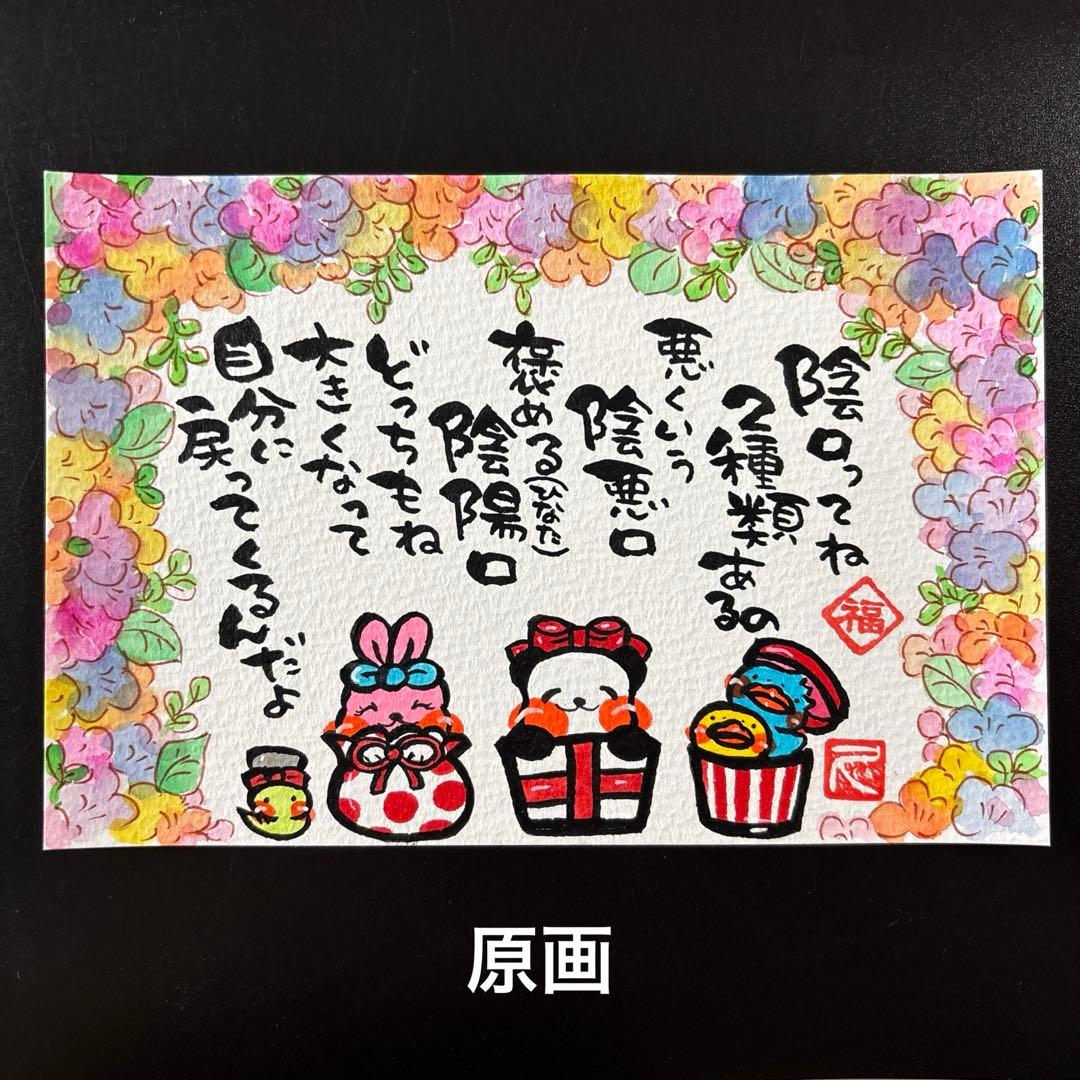 陰口ってね
2種類あるの
悪くいう
陰悪口
褒める(ひなた)
陰陽口
どっちもね
大きくなって
自分に
戻ってくるんだよ
福
原画